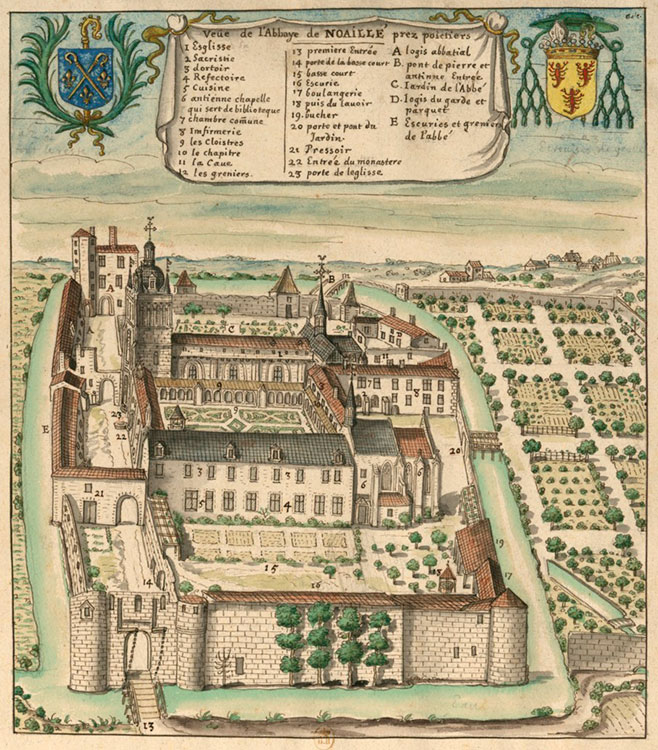 Veue de l'Abbaye de NOAILLÉ prez poictiers
1 Esglisse
2 Sacristie
3 dortoir
4 Refectoire
5 Cuisine
6 antienne chapelle
qui sert de biblioteque
7 chambre comũne
8 Imfirmerie
9 les Cloistres
10 le chapitre
11 la Caue
12 les greniers.
13 premiere Entrée
14 porte de la basse court
15 basse court
16 Escurie
17 boulangerie
18 puis du lauoir
19. bucher
20 porte et pont du
Jardin.
21 Pressoir
22 Entrée du monastere
23 porte de leglisse
A logis abbatial
B. pont de pierre et
antinne Entrée
C. Iardin de l'Abbé
D. logis du garde et
parquet
E Escuries et greniers
de l'abbé
A
B
C
9
9
8
23
22
E
20
3
3
3
3
6
5
4
21
19
15
18
17
14
16
13